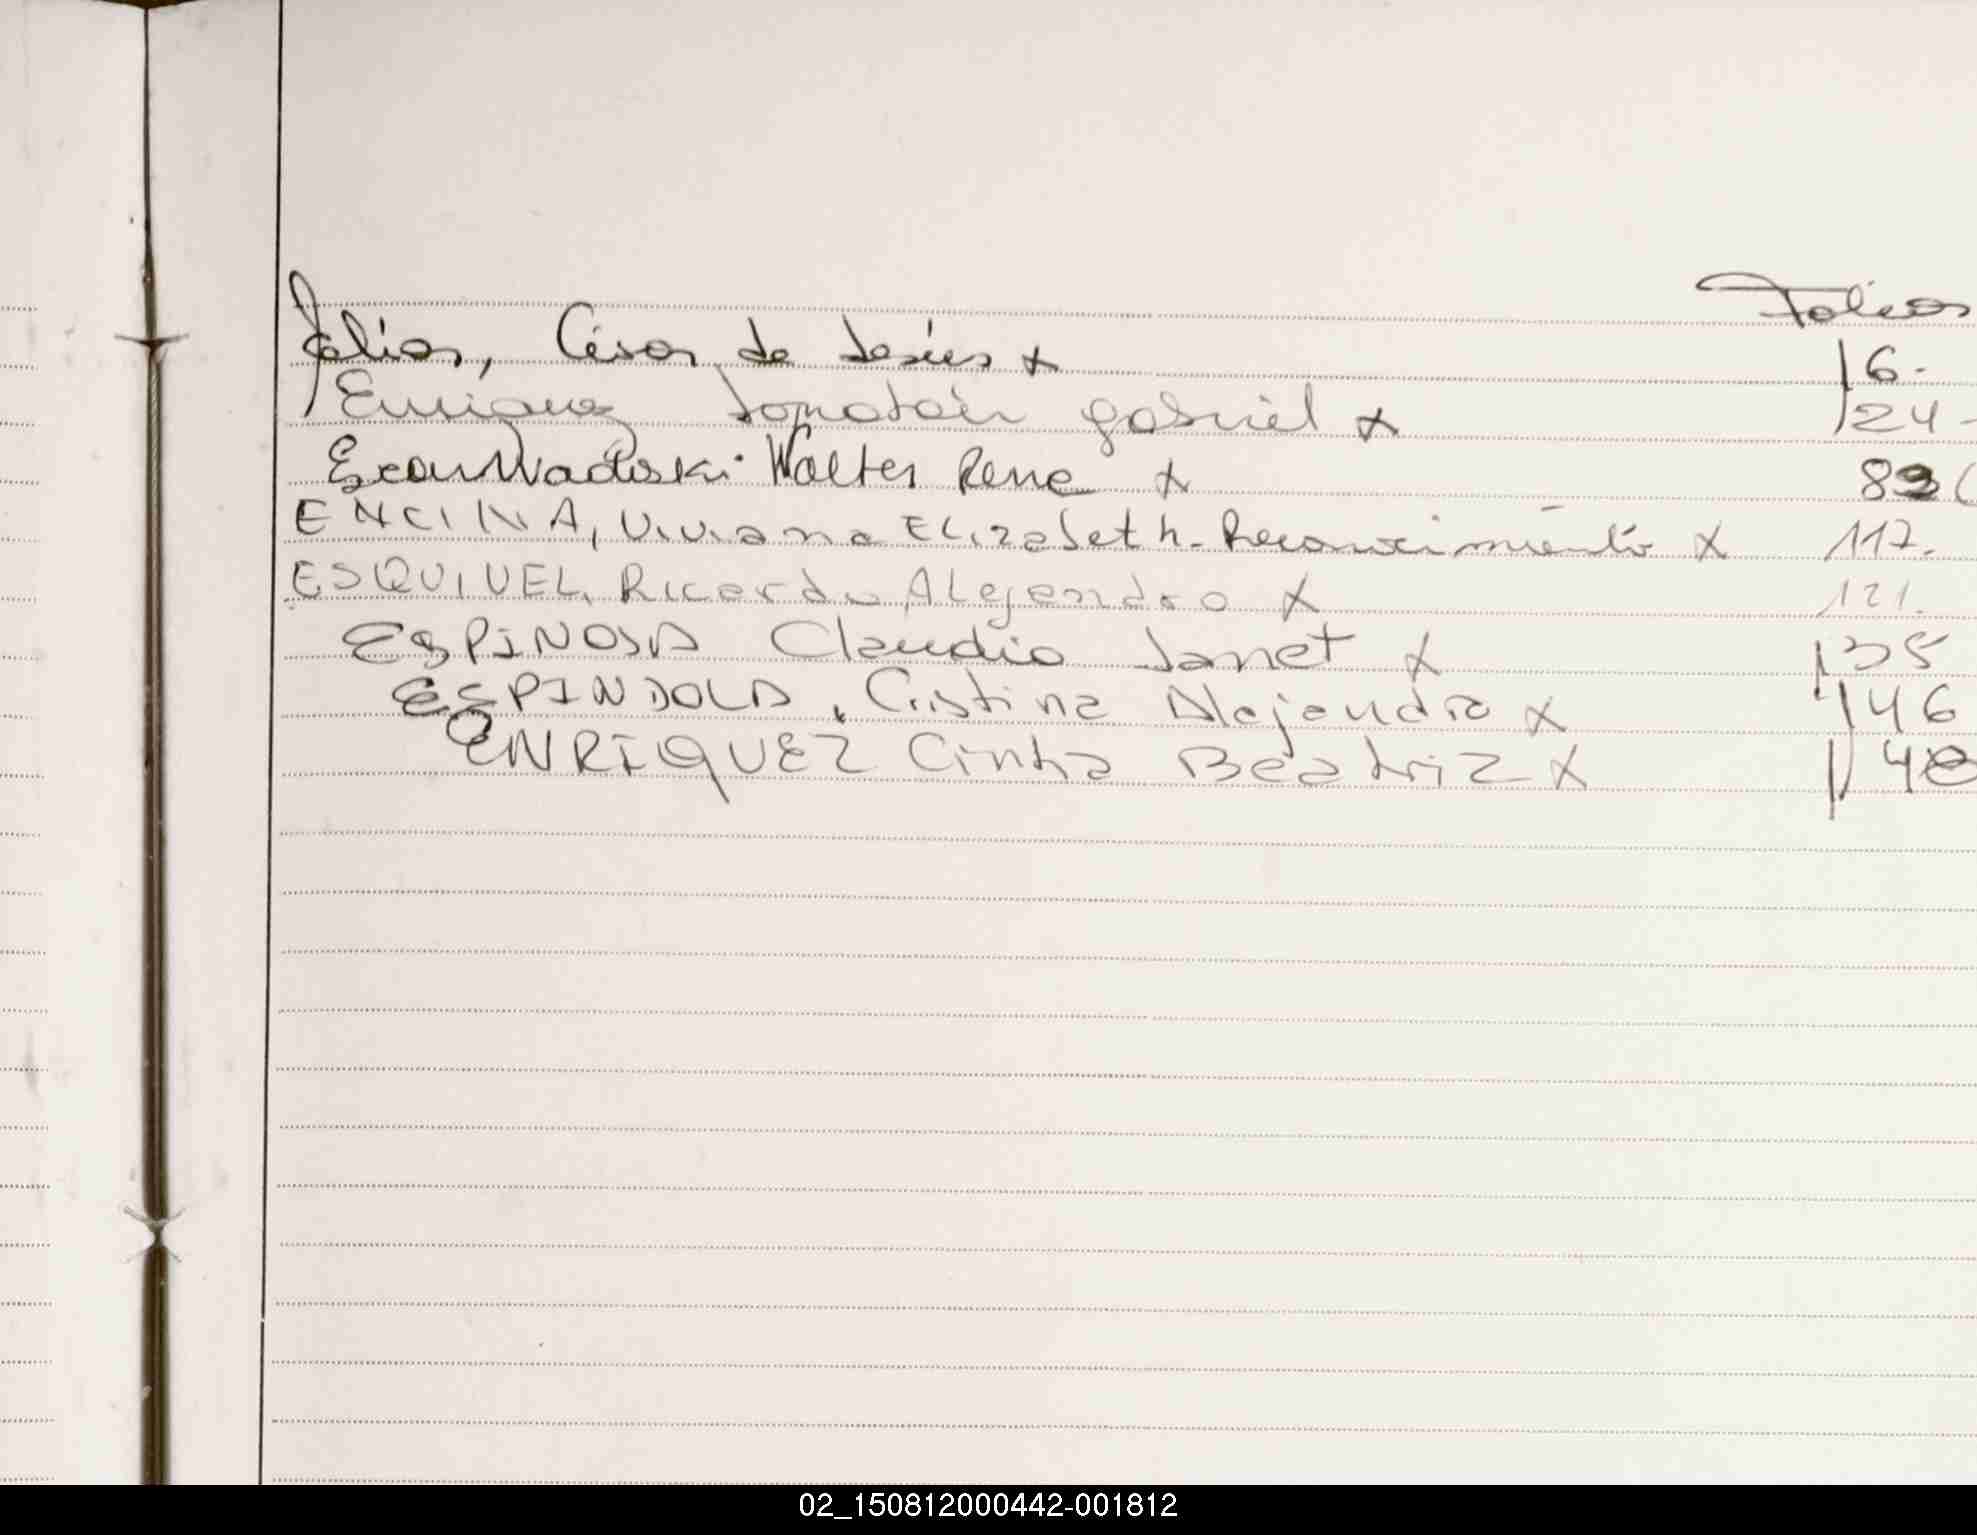 Folios
Galias, César de Jesús x 16.
Enriquez Jonatán gabriel x 24-
Walter Rene x 89 (
ENCINA, Viviana ELizabeth. Reconocimiento x 117.
ESQUIVEL, Ricardo ALejandro x 121.
ESPINOSA Claudia Janet x 135
ESPINDOLA, Cristina Alejandra x 146
ENRIQUEZ Cintia Beatriz x 148
02_150812000442-001812